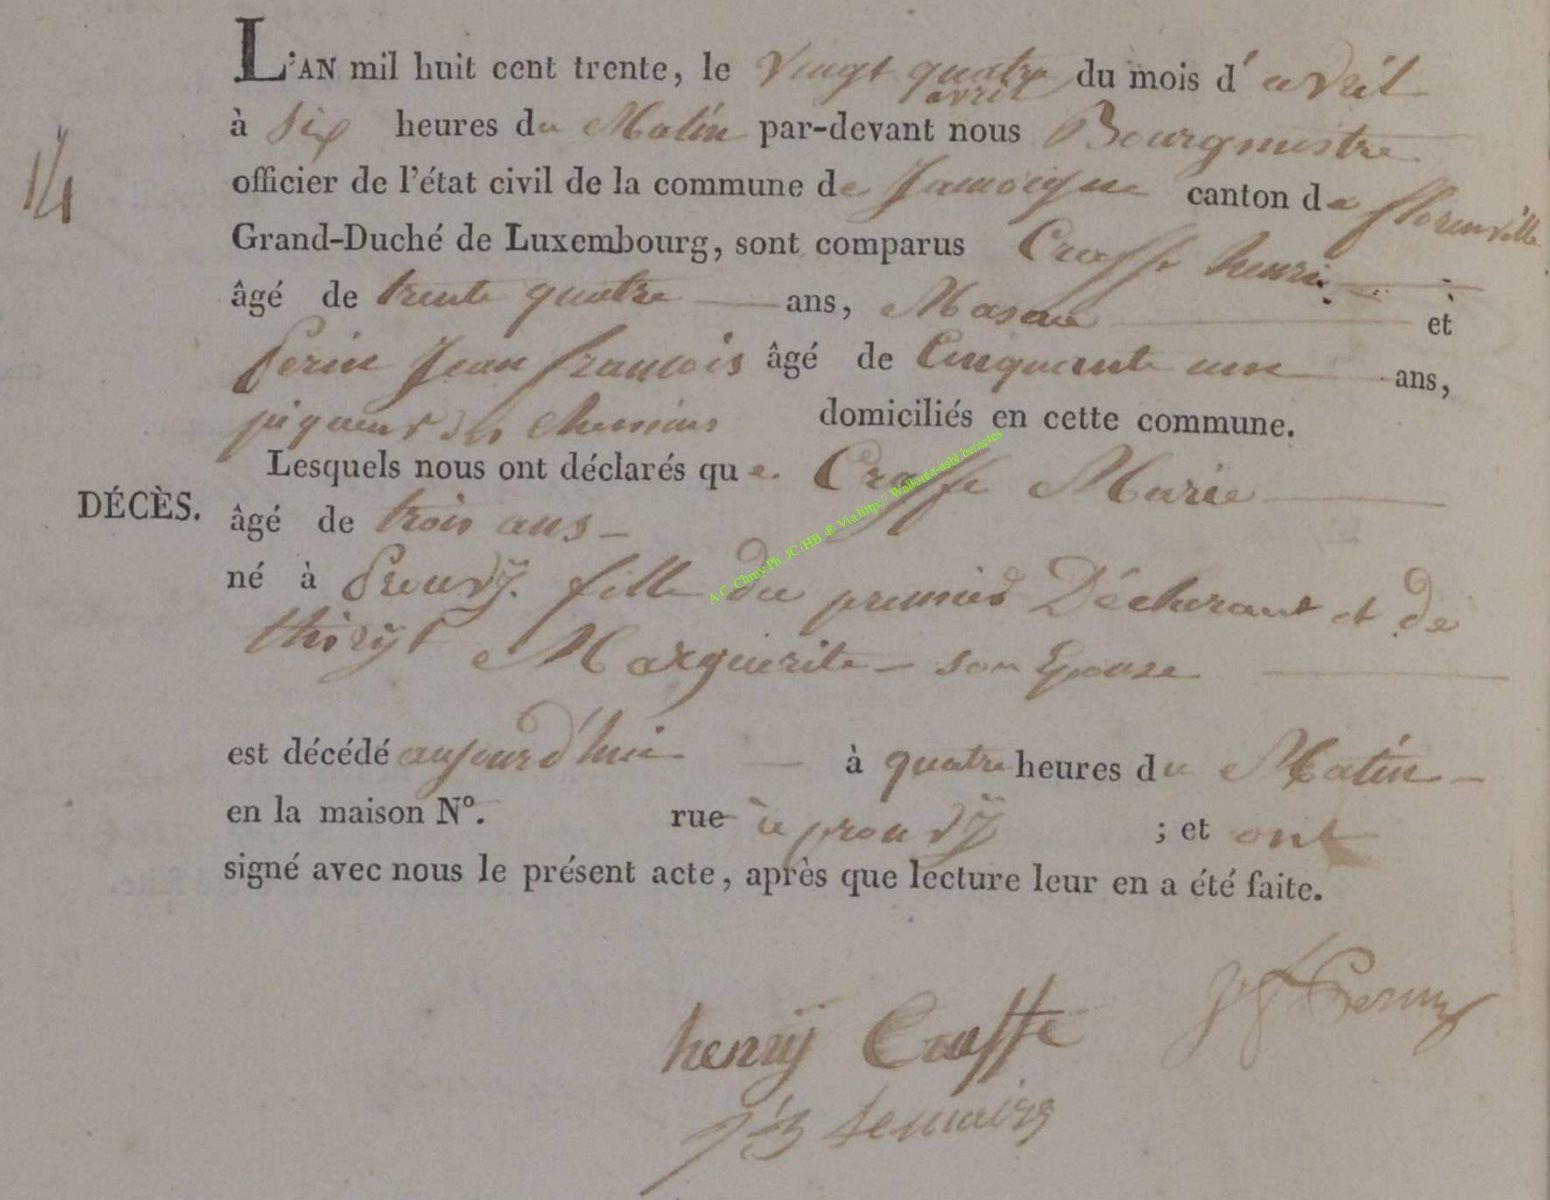 L'AN mil huit cent trente, le Vingt quatre du mois d' avril
avril
à Six heures du Matin par-devant nous Bourgmestre
14
officier de l'état civil de la commune de Jamoigne canton de florenville
Grand-Duché de Luxembourg, sont comparus Craffe henri
âgé de trente quatre ans, Mason et
Perin Jean francois âgé de Cinquante une ans,
piqueur des chemins domiciliés en cette commune.
Lesquels nous ont déclarés que Craffe Marie
DÉCÈS.
âgé de trois ans
né à Prouvÿ. fille du premier Déclarant et de
thirÿt Marguerite son Epouse
est décédé aujourd'hui à quatre heures du Matin
en la maison N°. rue à prouvÿ ; et ont
signé avec nous le présent acte, après que lecture leur en a été faite.
henrÿ Craffe
A.C. Chiny Ph. JC/HB @ Via http:// Wallonia-asbl.be/actes